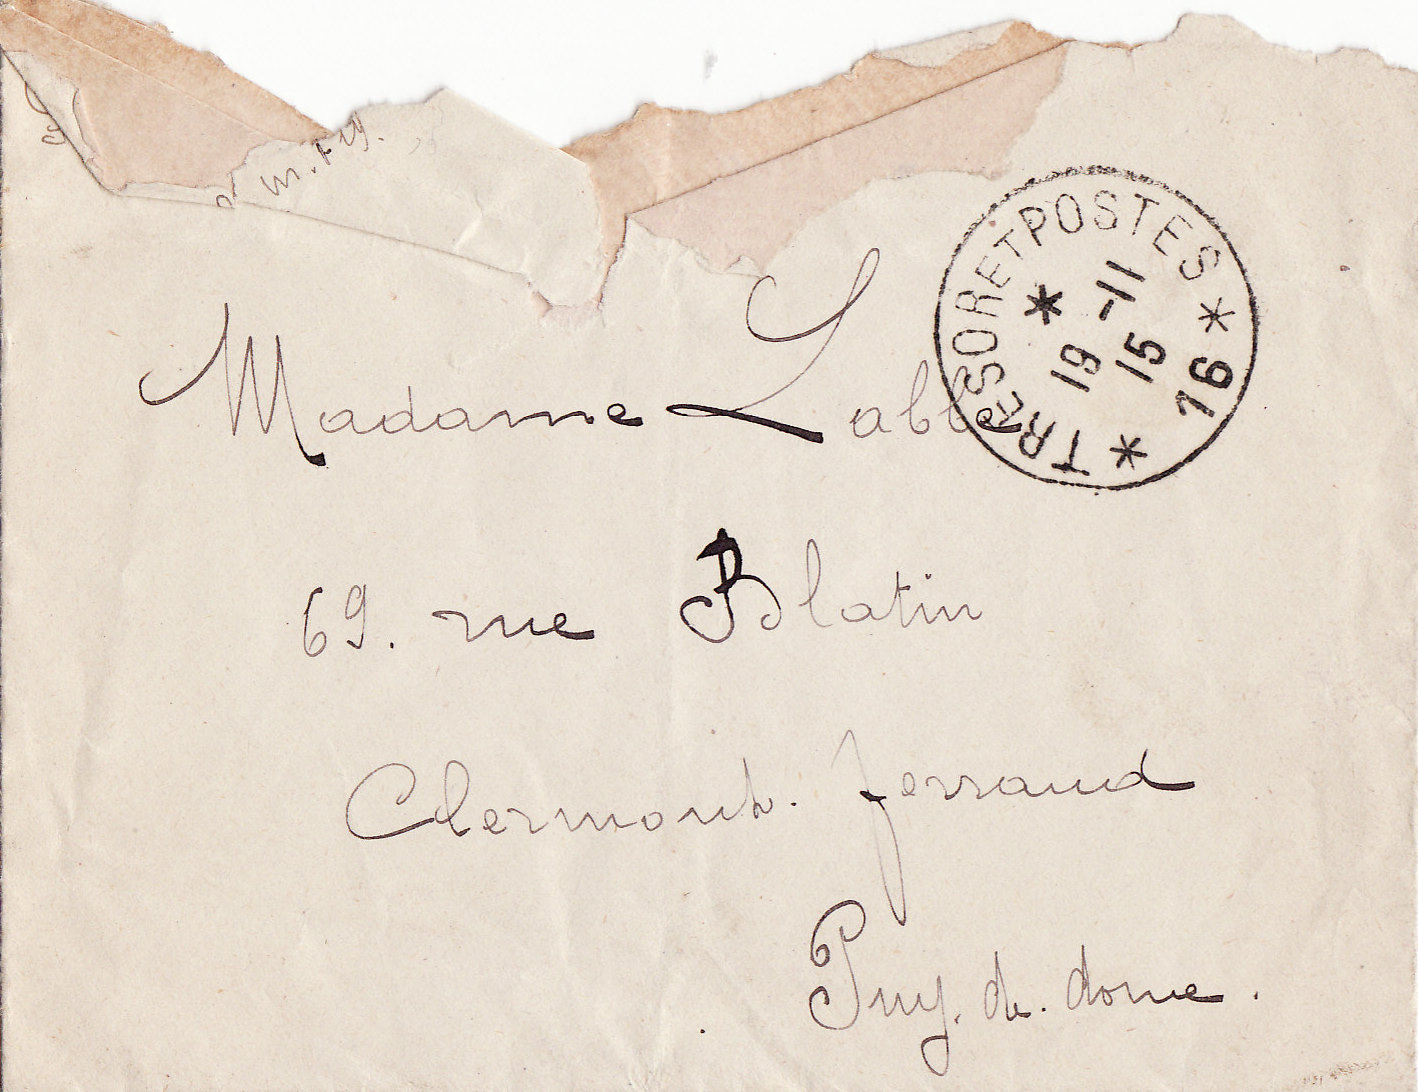 m.
TRESOR ET POSTES
* 19 -11
15
* 16 *
Madame
69. rue Blatin
Clermont. ferrand
Puy. de. dome.